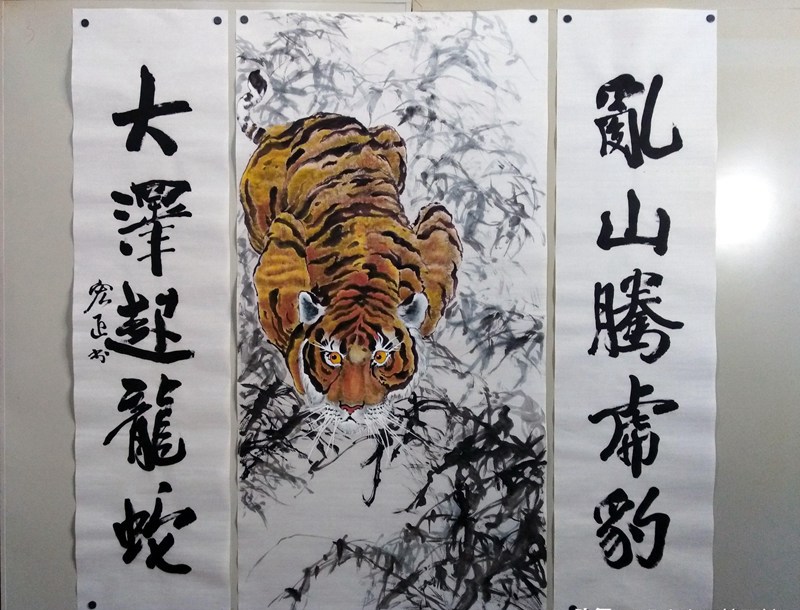 亂山騰虎豹
大澤起龍蛇
宏正书